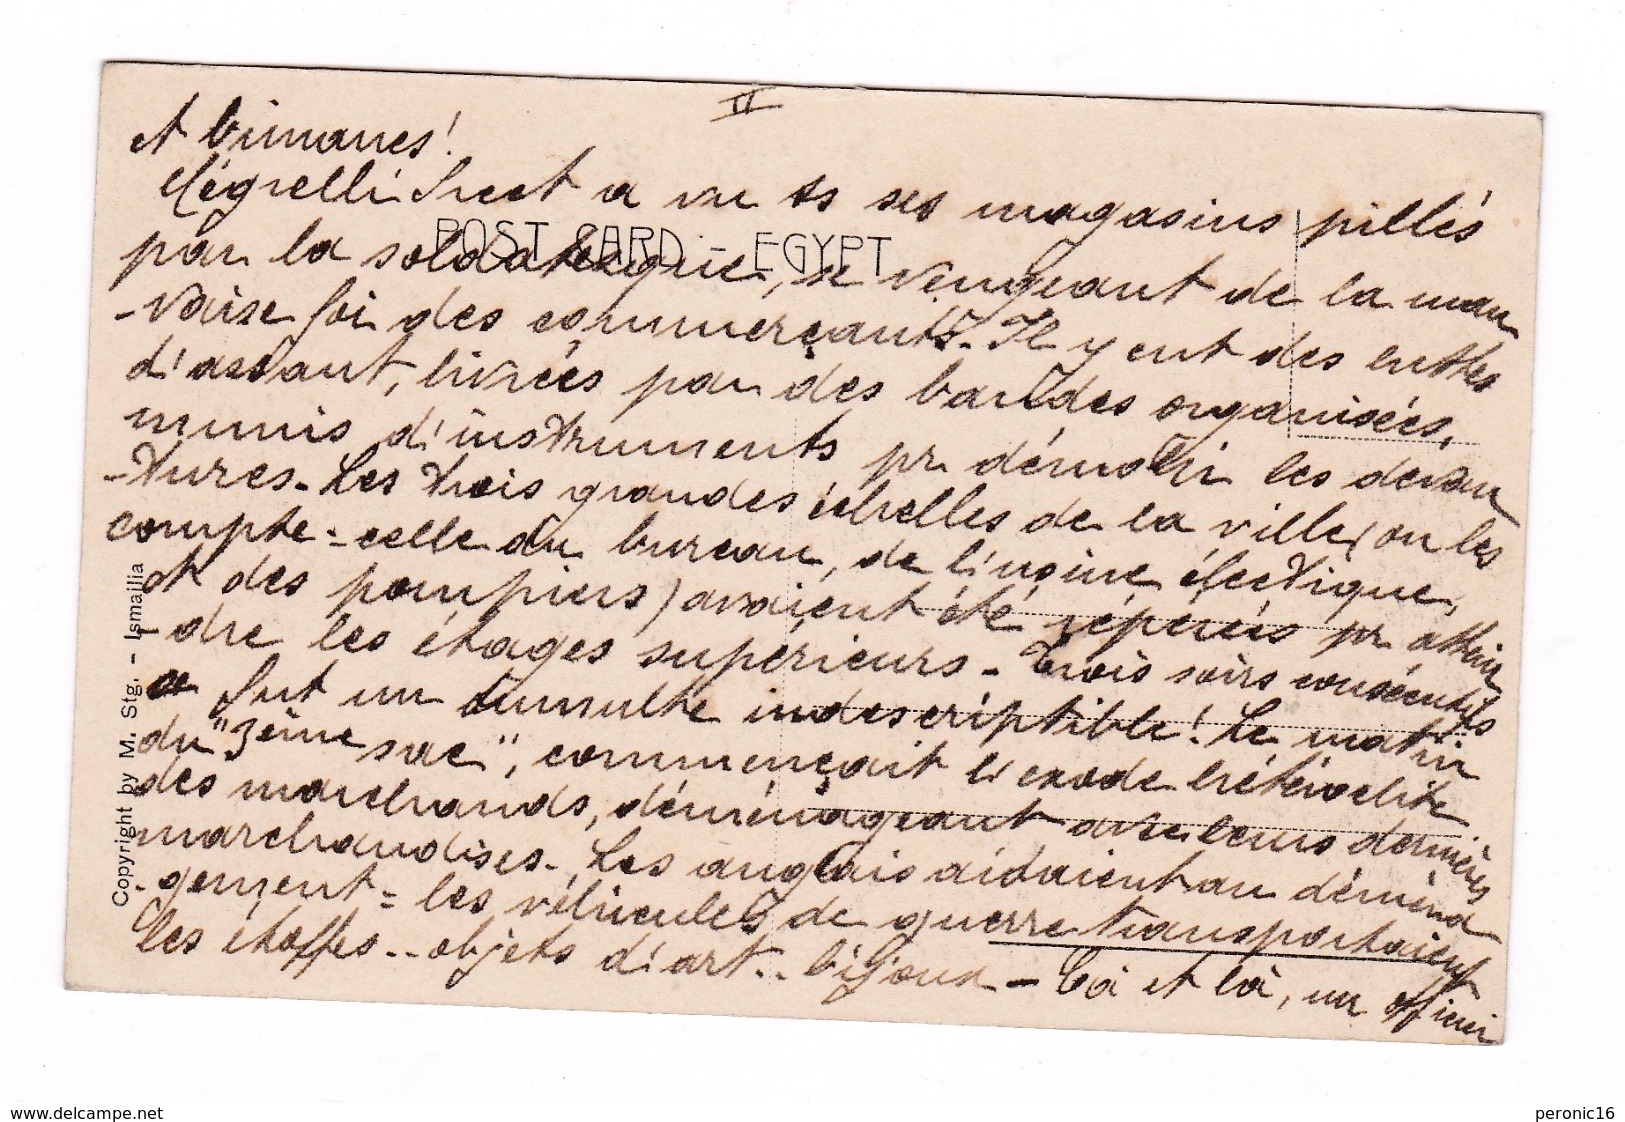 II
et birmanes!
Négrelli Street a vu ts ses magasins pillés
POST CARD - EGYPT
par la soldatesque, se vengeant de la mau
-vaise foi des commerçants. Il y eut des luttes
d'assaut, livrées par des bandes organisées,
munis d'instruments pr. démolir les devan
-tures. Les trois grandes échelles de la ville (on les
compte: celle du bureau, de l'usine électrique,
et des pompiers) avaient été repérées pr attein
-dre les étages supérieurs - Trois soirs consécutifs
ce fut un tumulte indescriptible! Le matin
du "3ème sac", commençait l'exode hétéroclite
des marchands, déménageant avec leurs dernières
marchandises. Les anglais aidaient au déména
-gement = les véhicules de guerre transportaient
les étoffes.. objets d'art.. bijoux - Çà et là, un officier
Copyright by M. Stg. - Ismaïlia
www.delcampe.net
peronic16